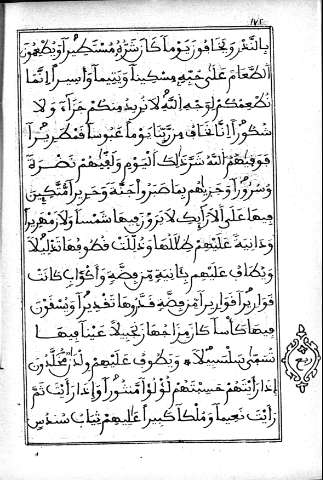 ١٧٢
بالنذر ويخافون يوما كان شره مستطيرا ويطعمون
الطعام على حبه مسكينا ويتيما وأسيرا إنما
نطعمكم لوجه الله لا نريد منكم جزاء ولا
شكورا إنا نخاف من ربنا يوما عبوسا قمطريرا
فوقيهم الله شر ذلك اليوم ولقيهم نضرة
وسرورا وجزيهم بما صبروا جنة وحريرا متكئين
فيها على الأرائك لا يرون فيها شمسا ولا زمهريرا
ودانية عليهم ظللها وذللت قطوفها تذليلا
ويطاف عليهم بآنية من فضة وأكواب كانت
قواريرا قواريرا من فضة قدروها تقديرا ويسقون
فيها كأسا كان مزاجها زنجبيلا عينا فيها
تسمى سلسبيلا ويطوف عليهم ولدان مخلدون
إذا رأيتهم حسبتهم لؤلؤا منثورا وإذا رأيت ثم
رأيت نعيما وملكا كبيرا عاليهم ثياب سندس
ربع